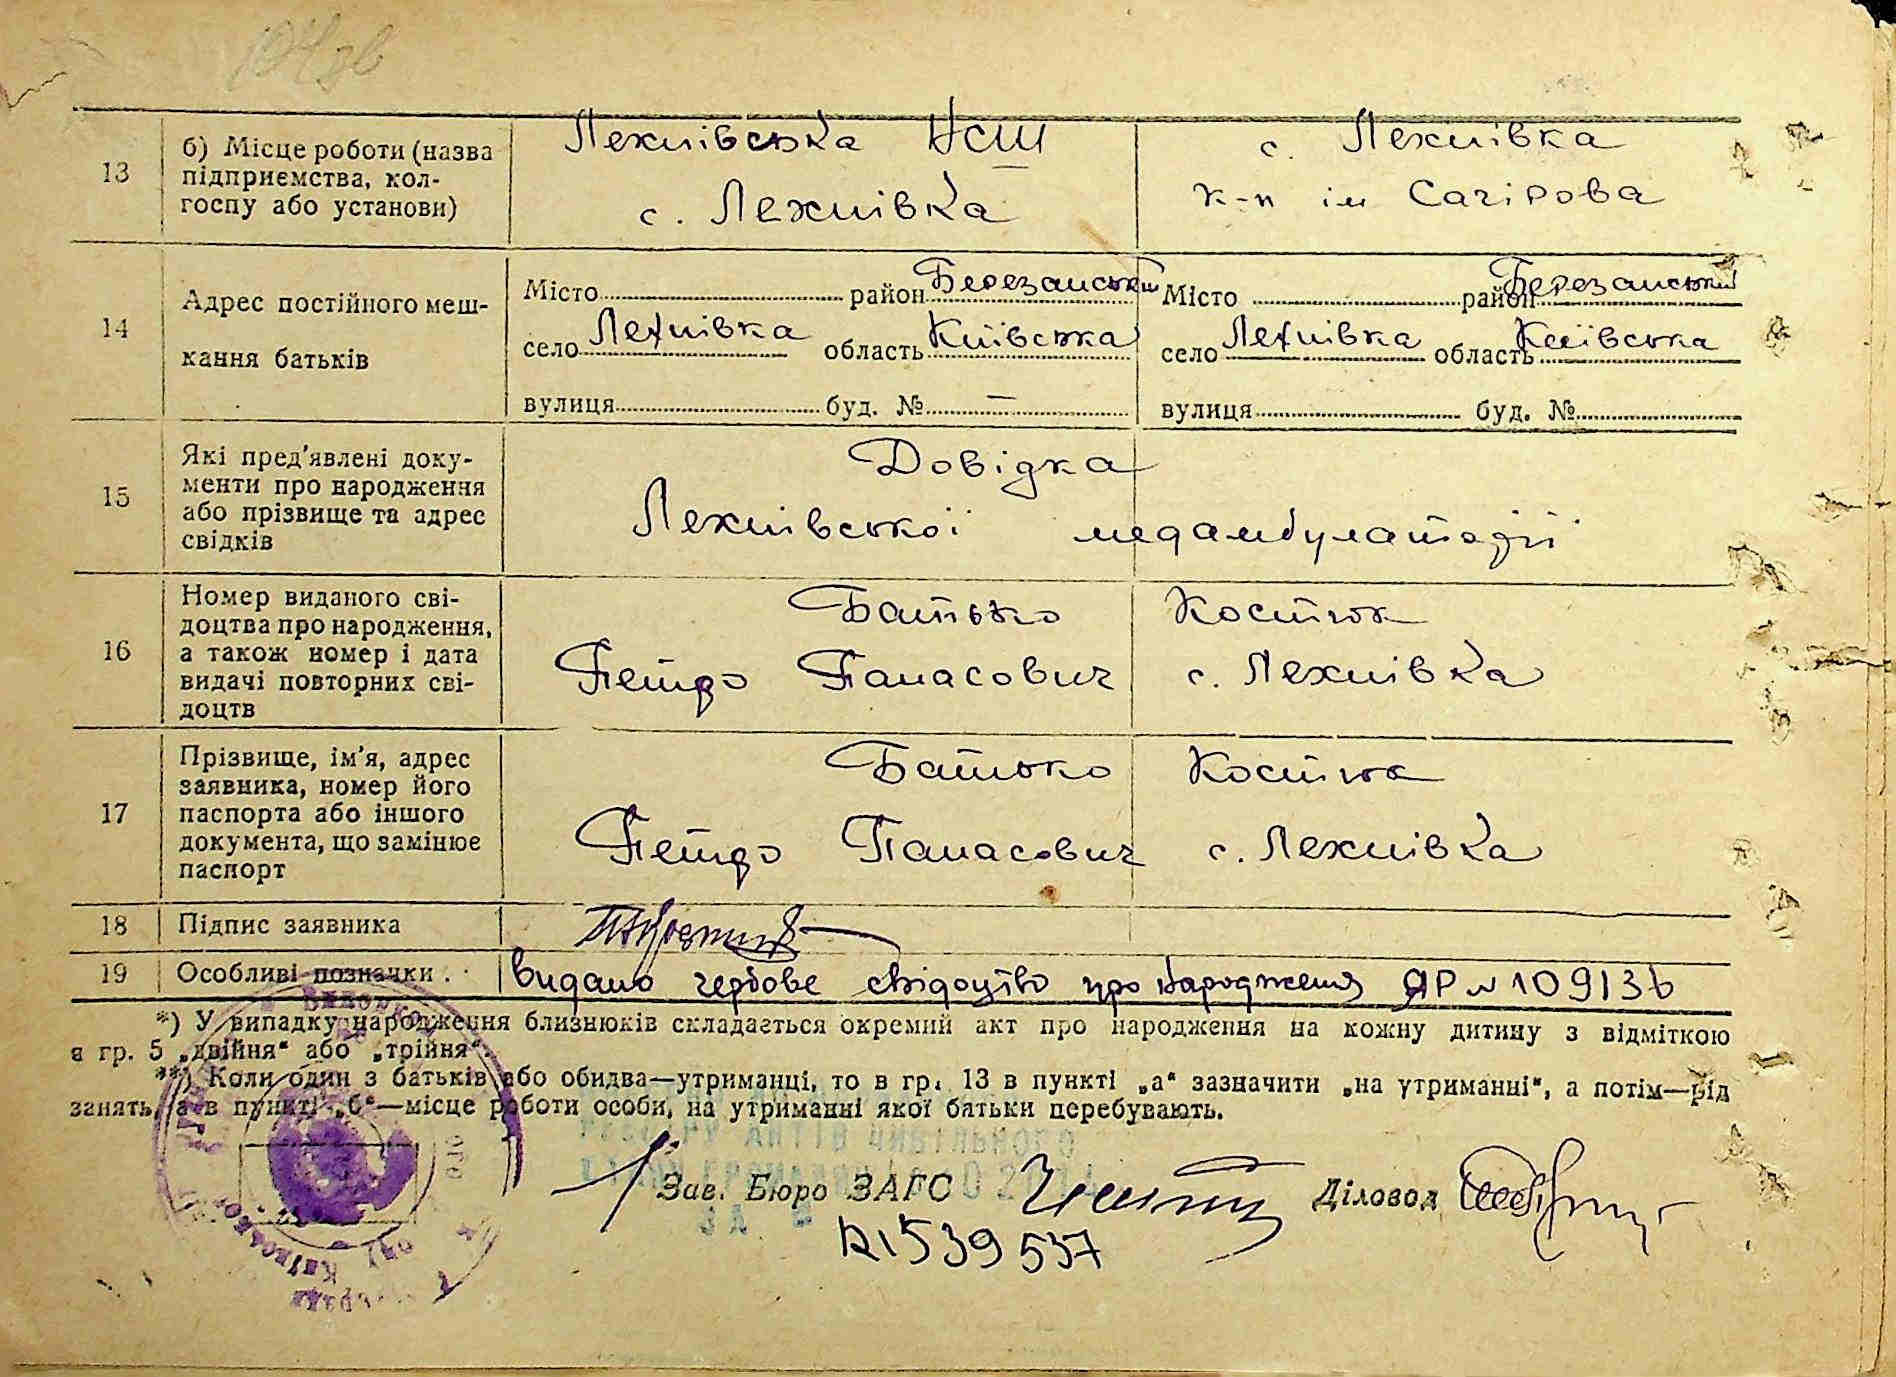 13
б) Місце роботи (назва
підприємства, кол-
госпу або установи)
Лехнівська НСШ
с. Лехнівка
с. Лехнівка
к-п ім
14
Адрес постійного меш-
кання батьків
Місто район Березанський
село Лехнівка область Київська
вулиця буд. № —
Місто район Березанський
село Лехнівка область Київська
вулиця буд. №
15
Які пред'явлені доку-
менти про народження
або прізвище та адрес
свідків
Довідка
Лехнівської медамбулаторії
16
Номер виданого сві-
доцтва про народження,
а також номер і дата
видачі повторних сві-
доцтв
Батько Костюк
Петро Панасович с. Лехнівка
17
Прізвище, ім'я, адрес
заявника, номер його
паспорта або іншого
документа, що замінює
паспорт
Батько Костюк
Петро Панасович с. Лехнівка
18
Підпис заявника
19
Особливі позначки
видано гербове свідоцтво про народження ЯР № 109136
*) У випадку народження близнюків складається окремий акт про народження на кожну дитину з відміткою
в гр. 5 „двійня“ або „трійня“.
**) Коли один з батьків або обидва—утриманці, то в гр. 13 в пункті „а“ зазначити „на утриманні“, а потім—рід
занять, а в пункті „б“—місце роботи особи, на утриманні якої батьки перебувають.
Зав. Бюро ЗАГС
Діловод
539537